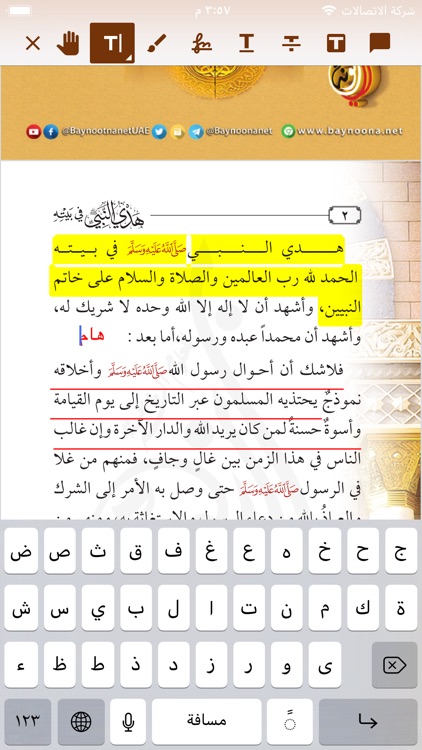 شركة الاتصالات ٣:٥٧ م
T
@BaynootnanetUAE @Baynoonanet www.baynoona.net
هَدْيُ النَّبِيِّ ﷺ فِي بَيْتِهِ ٢
هـــدي الـــنـــبـــي ﷺ في بـيـتـه
الحمد لله رب العالمين والصلاة والسلام على خاتم
النبيين، وأشهد أن لا إله إلا الله وحده لا شريك له،
وأشهد أن محمداً عبده ورسوله،أما بعد : هام
فلاشك أن أحوال رسول الله ﷺ وأخلاقه
نموذجٌ يحتذيه المسلمون عبر التاريخ إلى يوم القيامة
وأسوةٌ حسنةٌ لمن كان يريد الله والدار الآخرة وإن غالب
الناس في هذا الزمن بين غالٍ وجافٍ، فمنهم من غلا
في الرسول ﷺ حتى وصل به الأمر إلى الشرك
والعياذُ بالله من دعاء الرسول والاستغاثة به، ومنهم من
ض ص ث ق ف غ ع ه خ ح ج
ش س ي ب ل ا ت ن م ك ة
ء ظ ط ذ د ز ر و ى
١٢٣ مسافة